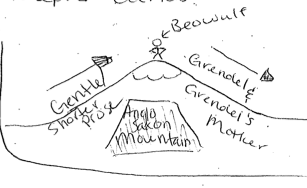 Beowulf
Gentle
Shorter
prose
Grendel &
Grendel's
Mother
Anglo
Saxon
Mountain